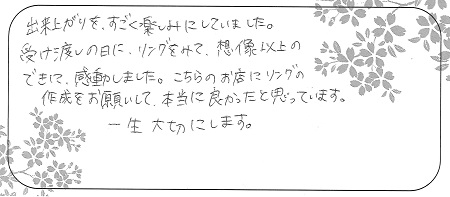 出来上がりを、すごく楽しみにしていました。
受け渡しの日に、リングをみて、想像以上の
できに、感動しました。こちらのお店にリングの
作成をお願いして、本当に良かったと思っています。
一生大切にします。